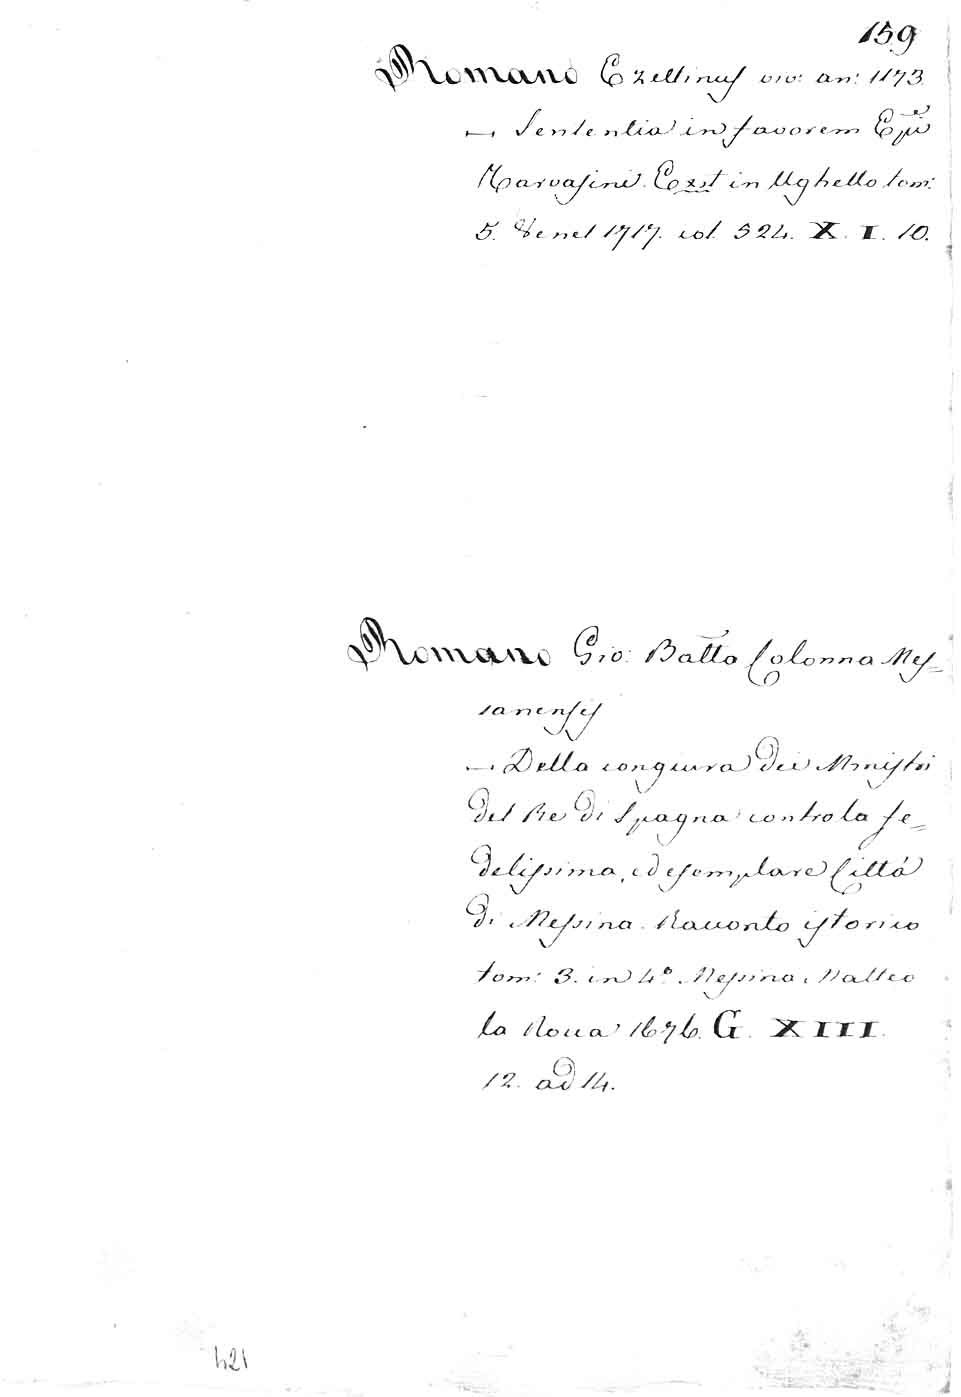 159
Romano Ezellinus viv: an: 1173.
— Sententia in favorem Epi
Tarvasini. Exst in Ughello tom:
5. Venet 1717. col. 524. X. I. 10.
Romano Gio: Batta Colonna Mes=
sanensis
— Della congiura dei Ministri
del Re di Spagna contro la fe=
delissima, ed esemplare Cittá
di Messina. Racconto istorico
tom: 3. in 4º Messina Matteo
la Rocca 1676. G. XIII.
12. ad 14.
421